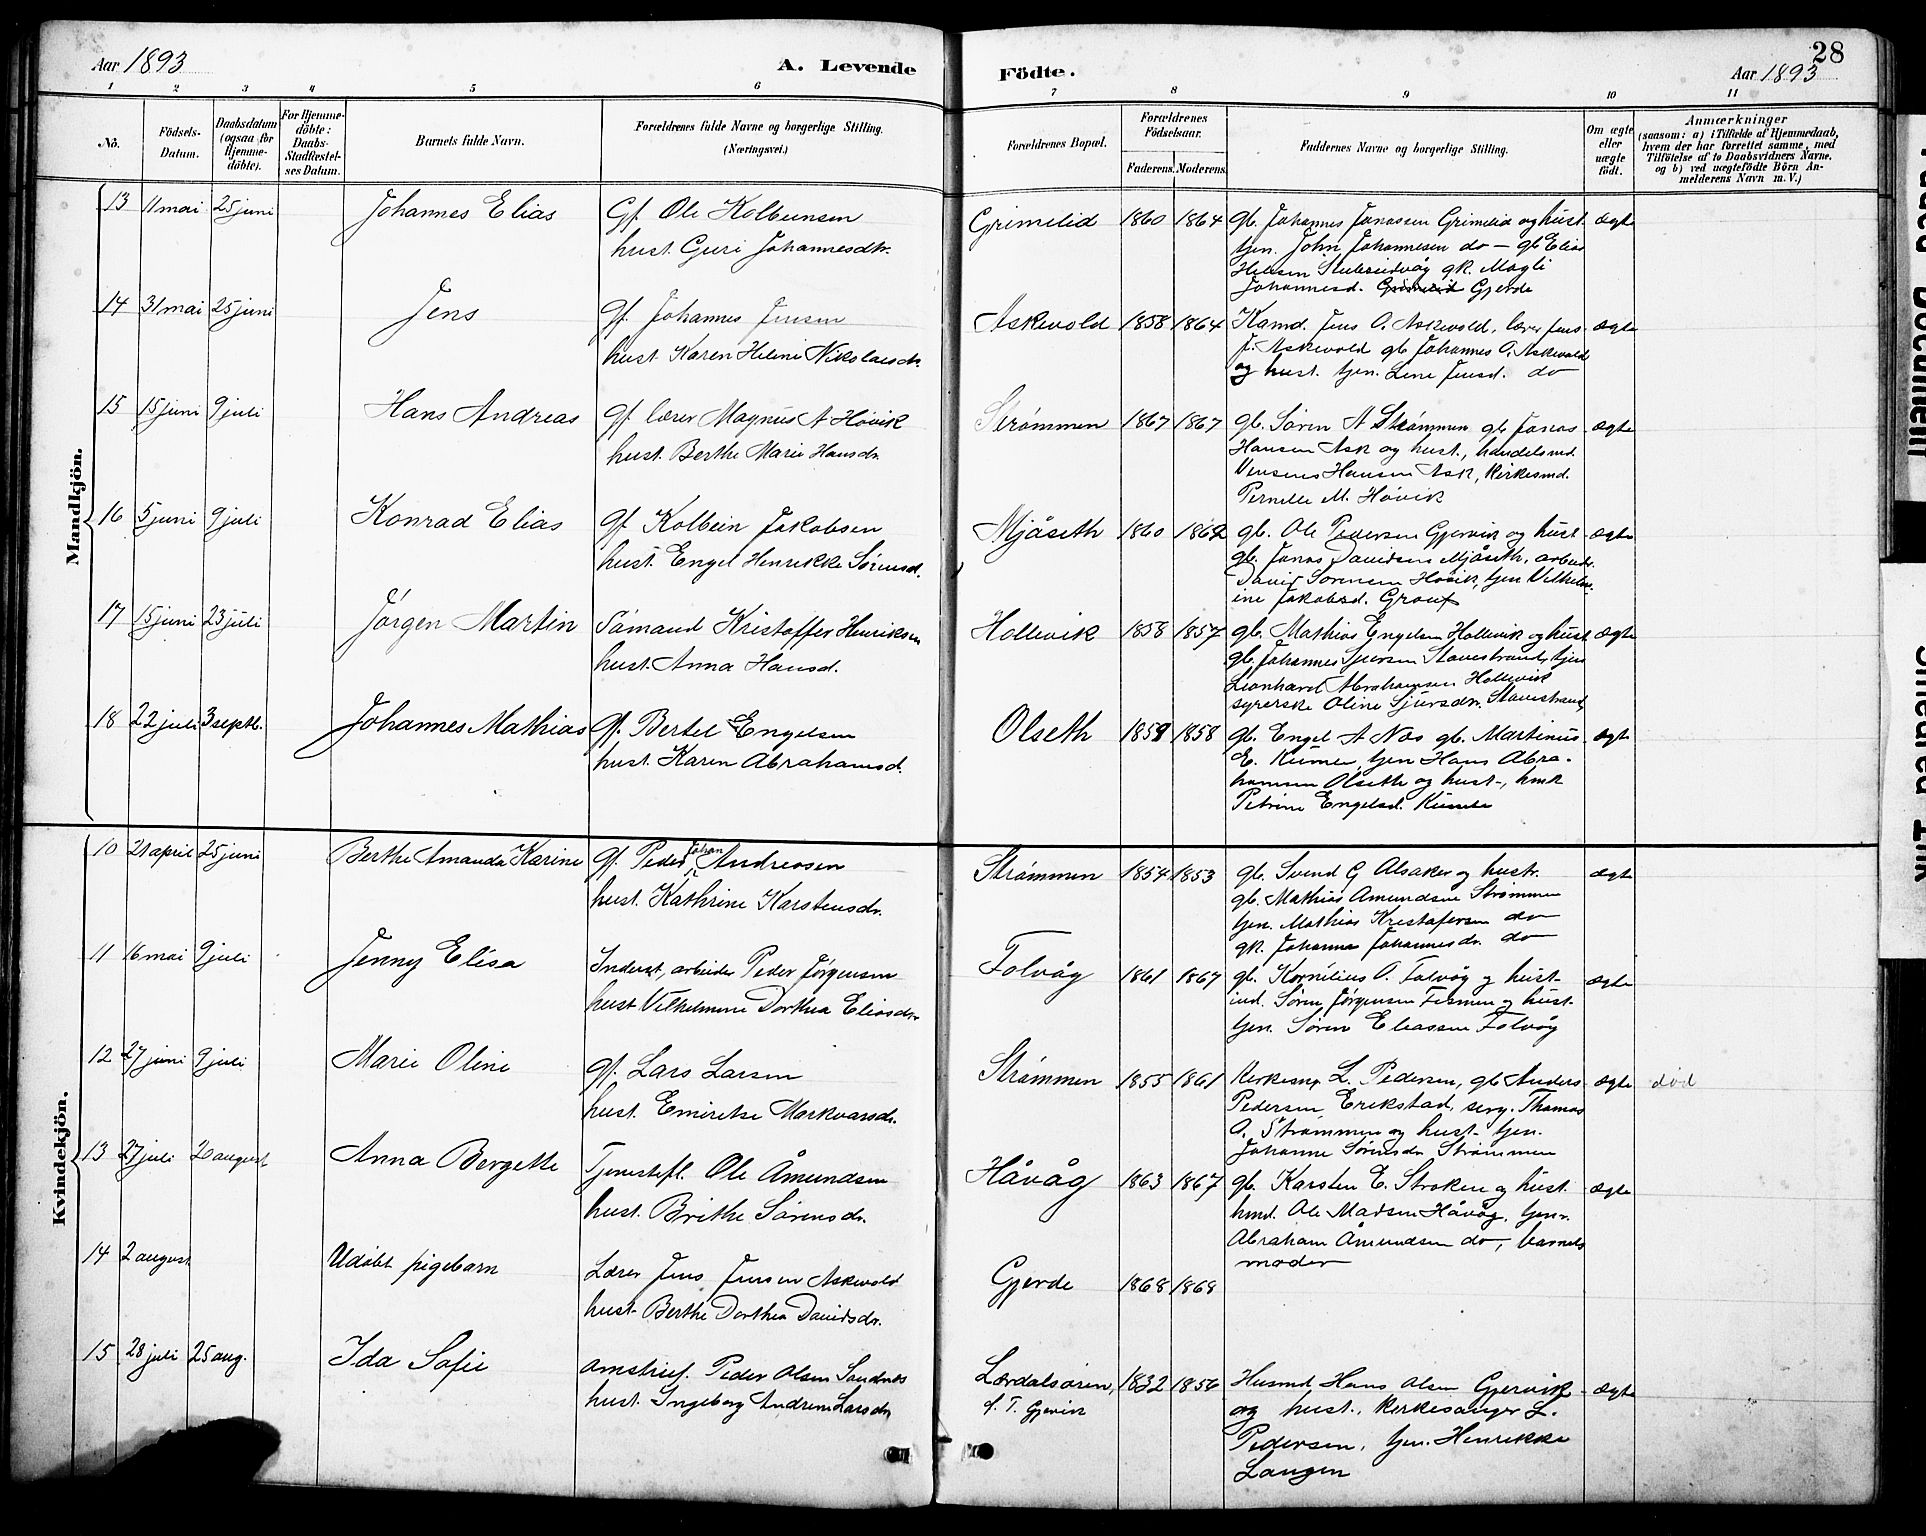 28
Aar 1893
A. Levende
Födte.
Aar 1893
1 2 3 4 5 6 7 8 9 10 11
No.
Födsels-Datum.
Daabsdatum (ogsaa for Hjemmedöbte).
For Hjemmedöbte: Daabs-Stadfæstelses Datum.
Barnets fulde Navn.
Forældrenes fulde Navne og borgerlige Stilling. (Næringsvei.)
Forældrenes Bopæl.
Forældrenes Födselsaar.
Faderens. Moderens.
Faddernes Navne og borgerlige Stilling.
Om ægte eller uægte födt.
Anmærkninger
(saasom: a) i Tilfælde af Hjemmedaab, hvem der har forrettet samme, med Tilföielse af to Daabsvidners Navne, og b) ved uægtefödte Börn Anmelderens Navn m. V.)
Mandkjön.
13 11 mai 25 juni Johannes Elias
Gf. Ole Kolbeinsen
hust. Guri Johannesdtr.
Grimelid 1860 1864
gb. Johannes Jonassen Grimelid og hust.
tjen. John Johannesen do – gb Elias
Johannesd. Grimelid Gjerde
ægte
14 31 mai 25 juni Jens
gf. Johannes Jensen
hust. Karen Helene Nikolaisdtr.
Askevold 1858 1864
Kand. Jens O. Askevold, lærer Jens
J. Askevold gb Johannes O. Askevold
og hust. tjen. Lene Jensd. do
ægte
15 15 juni 9 juli Hans Andreas
gf. lærer Magnus A Høvik
hust. Berthe Marie Hansdr.
Strømmen 1867 1867
gb. Søren A Strømmen gb Jonas
Hansen Ask og hust., handelsmd.
Hansen Ask, Kirkesmd.
Pernille M. Høvik
ægte
16 5 juni 9 juli Konrad Elias
gf Kolbein Jakobsen
hust. Engel Henrikke Sørensd.
Mjåseth 1860 1862
gb. Ole Pedersen Gjervik og hust
gb. Jonas Davidsen Mjåseth, arbeidr.
David Sørensen Høvik, tjen Vilhelm-
ine Jakobsd.
ægte
17 15 juni 23 juli Jörgen Martin
Sömand Kristoffer Henriksen
hust. Anna Hansd.
Hollevik 1858 1857
gb. Mathias Engelsen Hollevik og hust.
gb. Johannes Sjursen Stavestrand, tjen
Leonhard Abrahamsen Hollevik
syerske Oline Sjursdr. Stavestrand
ægte
18 22 juli 3 septb. Johannes Mathias
gf. Bertel Engelsen
hust. Karen Abrahamsd.
Olseth 1858 1858
gb. Engel A Næs gb. Martinus
E. tjen Hans Abra-
hamsen Olseth og hust-,
Petrine Engelsd.
ægte
Kvindekjön.
10 21 april 25 juni Berthe Amanda Karine
gf. Peder Johan Andreasen
hust. Kathrine Karstensdr.
Strømmen 1854 1853
gb. Svend G Alsaker og hustr.
gb. Mathias Amundsen Strømmen
tjen. Mathias Kristofersen do
gk. Johanna Johannesdr. do
ægte
11 16 mai 9 juli Jenny Elisa
Inderst, arbeider Peder Jörgensen
hust Vilhelmine Dorthea Eliasdr.
Folvåg 1861 1867
gb. Kornelius O. Folvåg og hust-
ind. Søren Jørgensen og hust.
tjen. Søren Eliassen Folvåg
ægte
12 27 juni 9 juli Marie Oline
gf. Lars Larsen
hust. Emiretse Markvarsdr.
Strømmen 1855 1861
Kirkesng. L. Pedersen, gb Anders
Pedersen Erikstad, serg. Thomas
O. Strømmen og hust- tjen.
Johanne Sørensdr Strømmen
ægte død
13 27 juli 20 august Anna Bergette
Tjenestefl. Ole Åmundsen
hust. Brithe Sørensdr.
Håvåg 1863 1867
gb. Karsten E. Stroken og hust.
hmd. Ole Madsen Håvåg, tjen.
Abraham Åmundsen do, barnets
moder
ægte
14 2 august Udøbt pigebarn
Lærer Jens Jensen Askevold
hust- Berthe Dorthea Davidsdr.
Gjerde 1868 1868
15 28 juli 25 aug. Ida Sofie
amstrief. Peder Olsen Sandnes
hust. Ingeborg Andrine Larsdr
Lærdalsören, 1832 1856
f. T. Gjervik
Husmd, Hans Olsen Gjervik
og hust., Kirkesanger L.
Pedersen, tjen. Henrikke
Langen
ægte